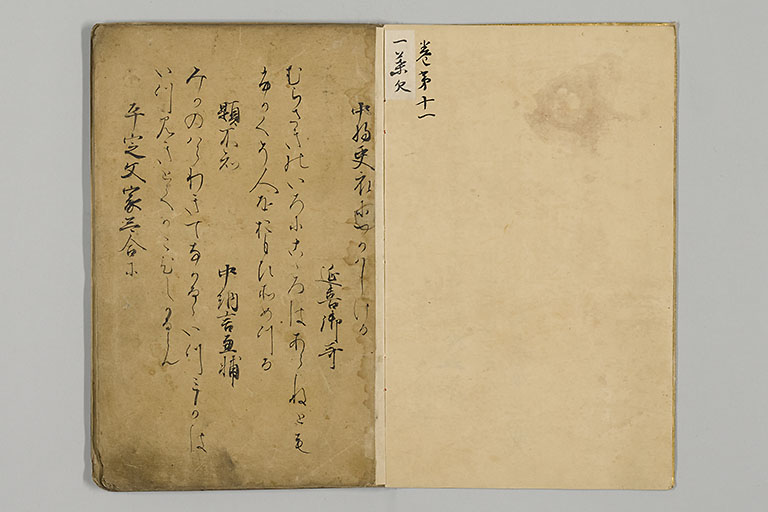 巻第十一
一葉欠
中将更衣につかはしける
延喜御哥
むらさきのいろにこゝろはあらねとも
ふかくそ人をおもひそめつる
題不知
中納言兼輔
みかのはらわきてなかるゝいつみかは
いつみきとてかこひしかるらん
平定文家哥合に